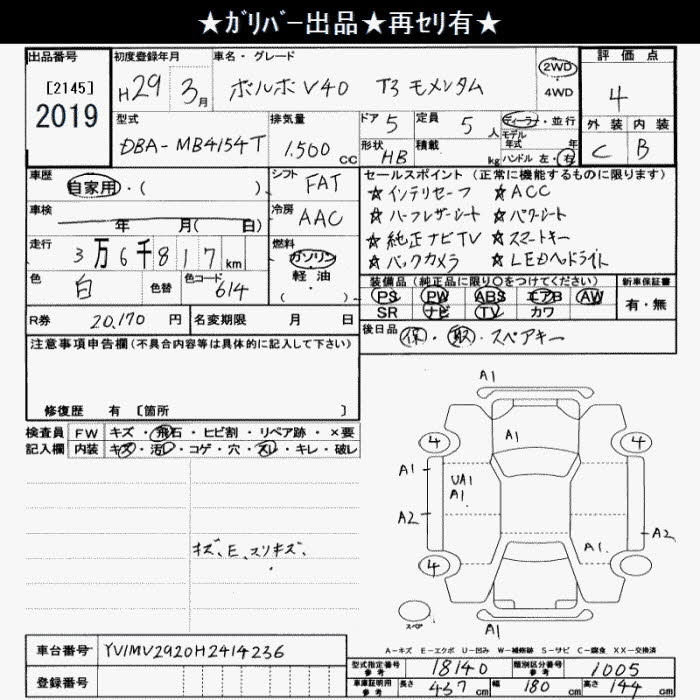 ★ｶﾞﾘﾊﾞｰ出品★再ｾﾘ有★
出品番号 初度登録年月 車名・グレード 評価点
[2145] H29 3月 ボルボV40 T3 モメンタム 2WD 4
2019 4WD
型式 排気量 ドア 定員 ディーラー・並行 外装 内装
DBA-MB4154T 1.500 CC 5 5 人 モデル年式 年 C B
形状 HB 積載 kg ハンドル 左・右
車歴 自家用・( ) シフト FAT セールスポイント (正常に機能するものに限ります)
☆インテリセーフ ☆ACC
車検 年 月( 日) 冷房 AAC ☆ハーフレザーシート ☆パワーシート
走行 3万6千817km 燃料 ガソリン ☆純正ナビTV ☆スマートキー
軽油 ☆バックカメラ ☆LEDヘッドライト
色 白 色替 色コード 614 ( )
装備品 (純正品に限り○をつけてください) 新車保証書
PS PW ABS エアB AW 有・無
SR ナビ TV カワ
R券 20,170 円 名変期限 月 日
後日品 保・取・スペアキー
注意事項申告欄(不具合内容等は具体的に記入して下さい)
修復歴 有 〔箇所 〕
検査員 FW キズ・飛石・ヒビ割・リペア跡・×要
記入欄 内装 キズ・汚レ・コゲ・穴・スレ・キレ・破レ
キズ、E、スリキズ、
A1
A1
4 4
A1 UA1
A1
A2 A2
A1
4
スペア
A1
A-キズ E-エクボ U-凹み W-補修跡 S-サビ C-腐食 XX-交換済
車台番号 YV1MV2920H2414236
型式指定番号 参考 18140 類別区分番号 参考 1005
登録番号 車庫証明用 参考 長さ 437 cm 幅 180 cm 高さ 144 cm